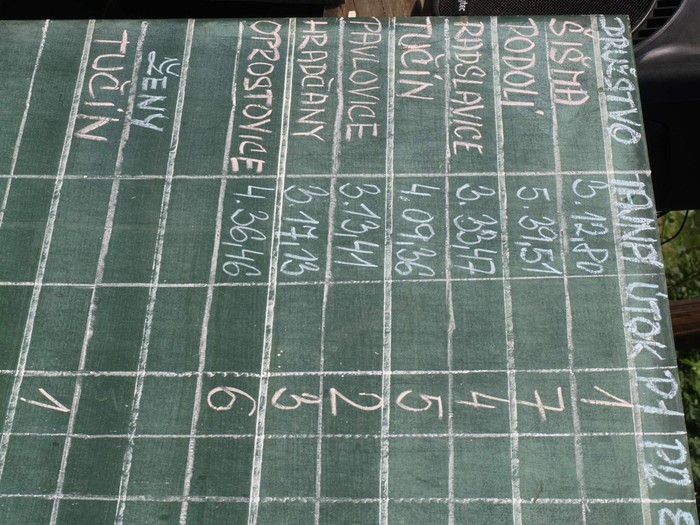 DRUŽSTVO DRÁHA ÚTOK PI PII
ŠIŠMA 3.12.80 1
PODOLÍ 5 39,51 7
RADSLAVICE 3 33,47 4
TUČÍN 4.09,36 5
PAVLOVICE 3.13 41 2
HRADČANY 3.17,13 3
OTROSTOVICE 4.36,46 6
ŽENY
TUČÍN 1